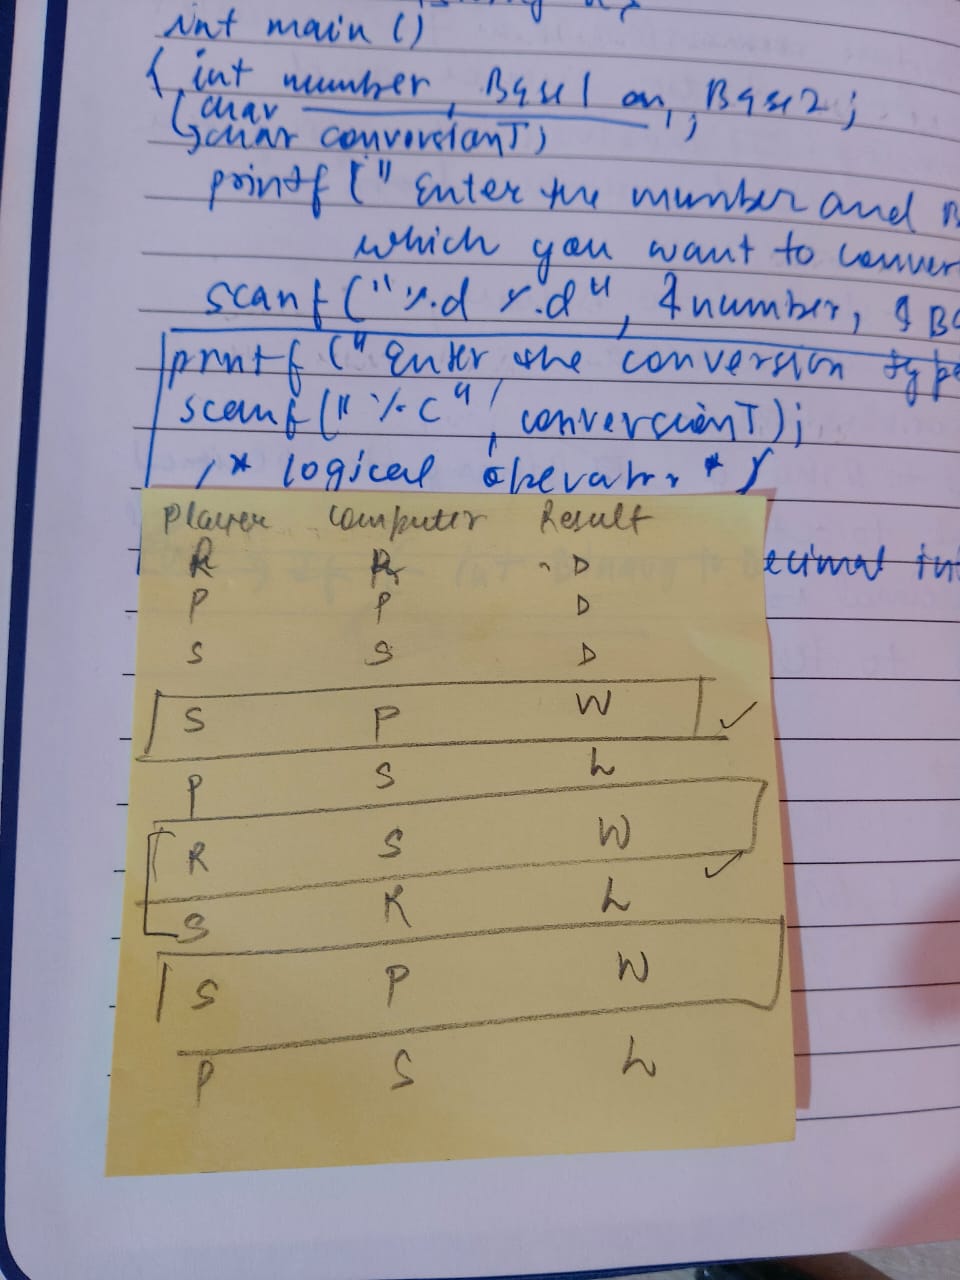 int main ()
{ int number, Base1 on, Base2;
char
char conversionT;
printf (" Enter the number and B
which you want to conver
scanf ("%d %d", &number, &Ba
printf (" Enter the conversion type
scanf (" %c", conversionT);
/* logical */
ecimal int
Player Computer Result
R R D
P P D
S S D
S P W ✓
P S L
R S W
S R L ✓
S P W
P S L